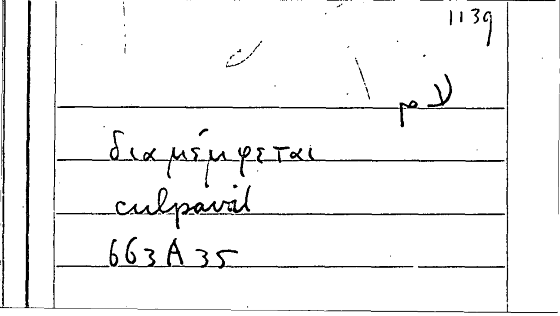 1139
لام
διαμέμφεται
culpavit
663A35